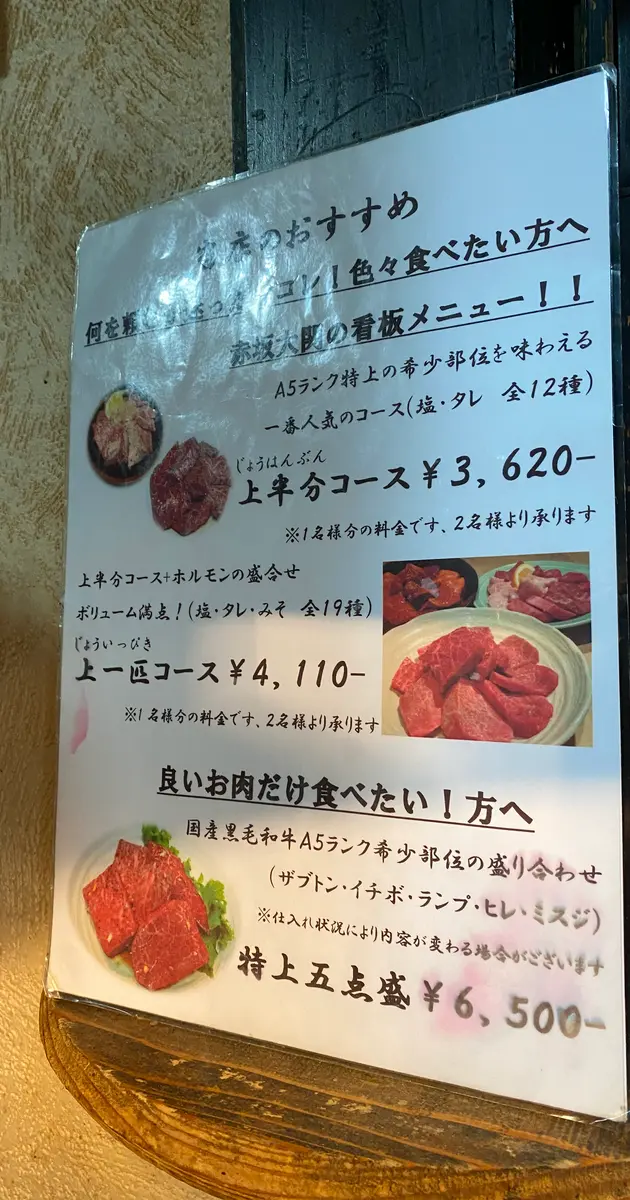 のおすすめ
何を コレ！色々食べたい方へ
赤坂大関の看板メニュー！！
A5ランク特上の希少部位を味わえる
一番人気のコース(塩・タレ 全12種)
じょうはんぶん
上半分コース¥3,620-
※1名様分の料金です、2名様より承ります
上半分コース+ホルモンの盛合せ
ボリューム満点！(塩・タレ・みそ 全19種)
じょういっぴき
上一匹コース¥4,110-
※1名様分の料金です、2名様より承ります
良いお肉だけ食べたい！方へ
国産黒毛和牛A5ランク希少部位の盛り合わせ
(ザブトン・イチボ・ランプ・ヒレ・ミスジ)
※仕入れ状況により内容が変わる場合がございます
特上五点盛¥6,500-